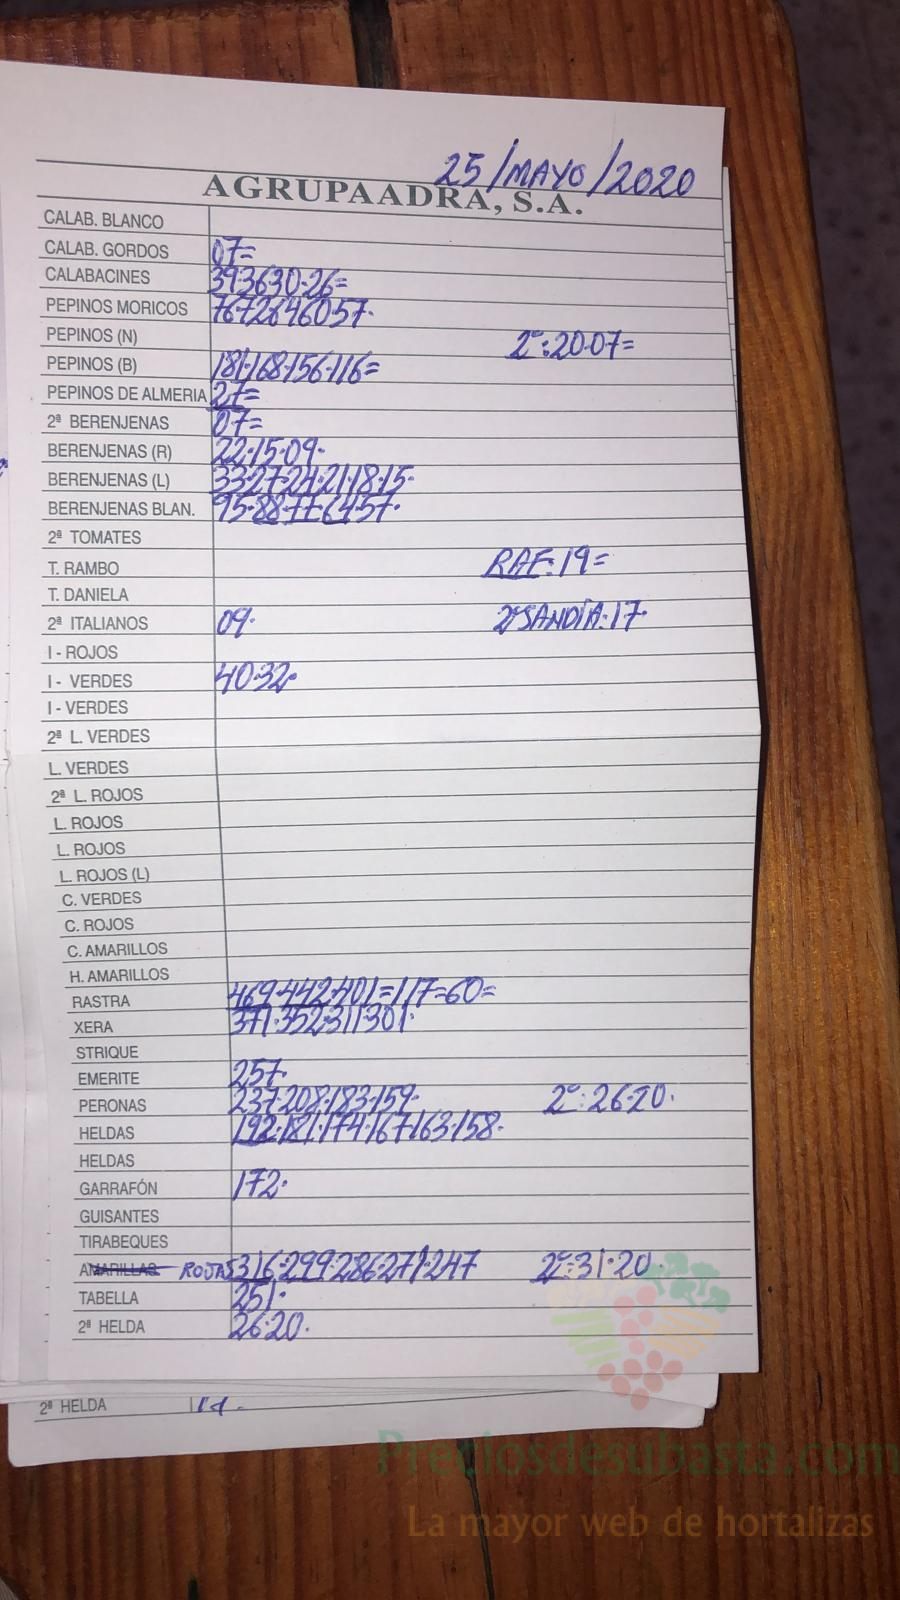 25/MAYO/2020
AGRUPAADRA, S.A.
CALAB. BLANCO
CALAB. GORDOS 07=
CALABACINES 39·36·30·26=
PEPINOS MORICOS 76·72·64·60·57·
PEPINOS (N) 2ª:20·07=
PEPINOS (B) 181·168·156·116=
PEPINOS DE ALMERIA 27=
2ª BERENJENAS 07=
BERENJENAS (R) 22·15·09·
BERENJENAS (L) 33·27·24·21·18·15·
BERENJENAS BLAN. 95·88·77·64·57·
2ª TOMATES
T. RAMBO RAF:19=
T. DANIELA
2ª ITALIANOS 09· 2ªSANDÍA:17·
I - ROJOS
I - VERDES 40·32·
I - VERDES
2ª L. VERDES
L. VERDES
2ª L. ROJOS
L. ROJOS
L. ROJOS
L. ROJOS (L)
C. VERDES
C. ROJOS
C. AMARILLOS
H. AMARILLOS
RASTRA 469·442·401=117=60=
XERA 371·352·311·301·
STRIQUE
EMERITE 257·
PERONAS 237·208·183·159· 2ª:26·20·
HELDAS 192·181·174·167·163·158·
HELDAS
GARRAFÓN 172·
GUISANTES
TIRABEQUES
AMARILLAS ROJAS 316·299·286·271·247 2ª:31·20·
TABELLA 251·
2ª HELDA 26·20·
2ª HELDA
Preciosdesubasta.com
La mayor web de hortalizas